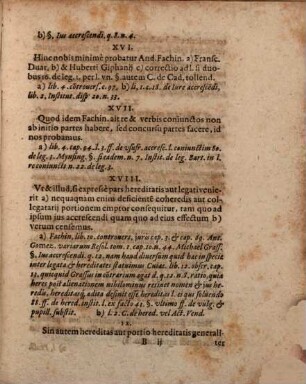 b) §. Ius accrescendi, q. 8. n. 4.
XVI.
Hinc nobis minimè probatur And. Fachin. a) Fransc.
Duar. b) & Huberti Giphanij c) correctio ad l. si duo
bus 16. de leg. 1. perl. vn. §. autem C. de Cad. tollend.
a) lib. 4. controvers. c. 97. b) li. 1. c. 18. de iure accrescēdi,
lib. 2. Institut. disp. 20. n. 35.
XVII.
Quod idem Fachin. ait re & verbis coniunctos non
ab initio partes habere, sed concursu partes facere, id
nos probamus.
a) lib. 4. cap. 94. l. 1. ff. de vsufr. accresc. l. coniunctim 80.
de leg. 3. Mynsing. §. si eadem. n. 7. Instit. de leg. Bart. in l.
re coniuncti n. 22. de leg. 3.
XVIII.
Vt & illud. si expresiè pars hereditatis aut legati venie
rit a) nequaquam enim deficientē coheredis aut col-
legatarij portionem emptor consequitur, tam quo ad
ipsum jus accrescendi quam quo ad eius effectum b)
verum censemus.
a) Fachin, lib. 10. controvers. juris cap. 3. & cap. 69. Ant.
Gomez. variarum Resol. tom. 1. cap. 10. n. 44. Michael Grass.
§. jus accrescendi, q. 23. nam haud diversum quid hac in specie
inter legata & hereditates statuimus Cuias. lib. 12. obser. cap.
13. quinicquid Grassus in contrarium agat d. q. 23. n. 8. ratio quia
heres post alienationem nihilominus retinet nomen & ius he
redis, hereditarq́, adita desinit esse hereditas l. ei qui solvendo
81. ff. de hered. instit. l. ex facto 45. §. ultimo ff. de vulg. &
pupill. substit. b) l. 2. C. de hered. vel Act. Vend.
Sin autem hereditas aut portio hereditatis generali-
B ij
ter